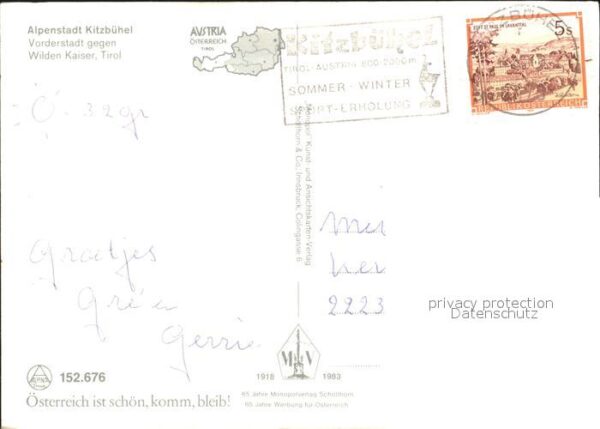 Alpenstadt Kitzbühel
Vorderstadt gegen
Wilden Kaiser, Tirol
AUSTRIA
ÖSTERREICH
TIROL
Kitzbühel
TIROL-AUSTRIA 800-2000 m
SOMMER - WINTER
SPORT-ERHOLUNG
STIFT ST. PAUL IM LAVANTTAL
5s
REPUBLIK ÖSTERREICH
Kunst- und Ansichtskarten-Verlag
Schöllhorn & Co., Innsbruck, Colingasse 6
Groetjes
Gerrie
2223
privacy protection
Datenschutz
M V
1918 1983
152.676
65 Jahre Monopolverlag Schöllhorn
65 Jahre Werbung für Österreich
Österreich ist schön, komm, bleib!